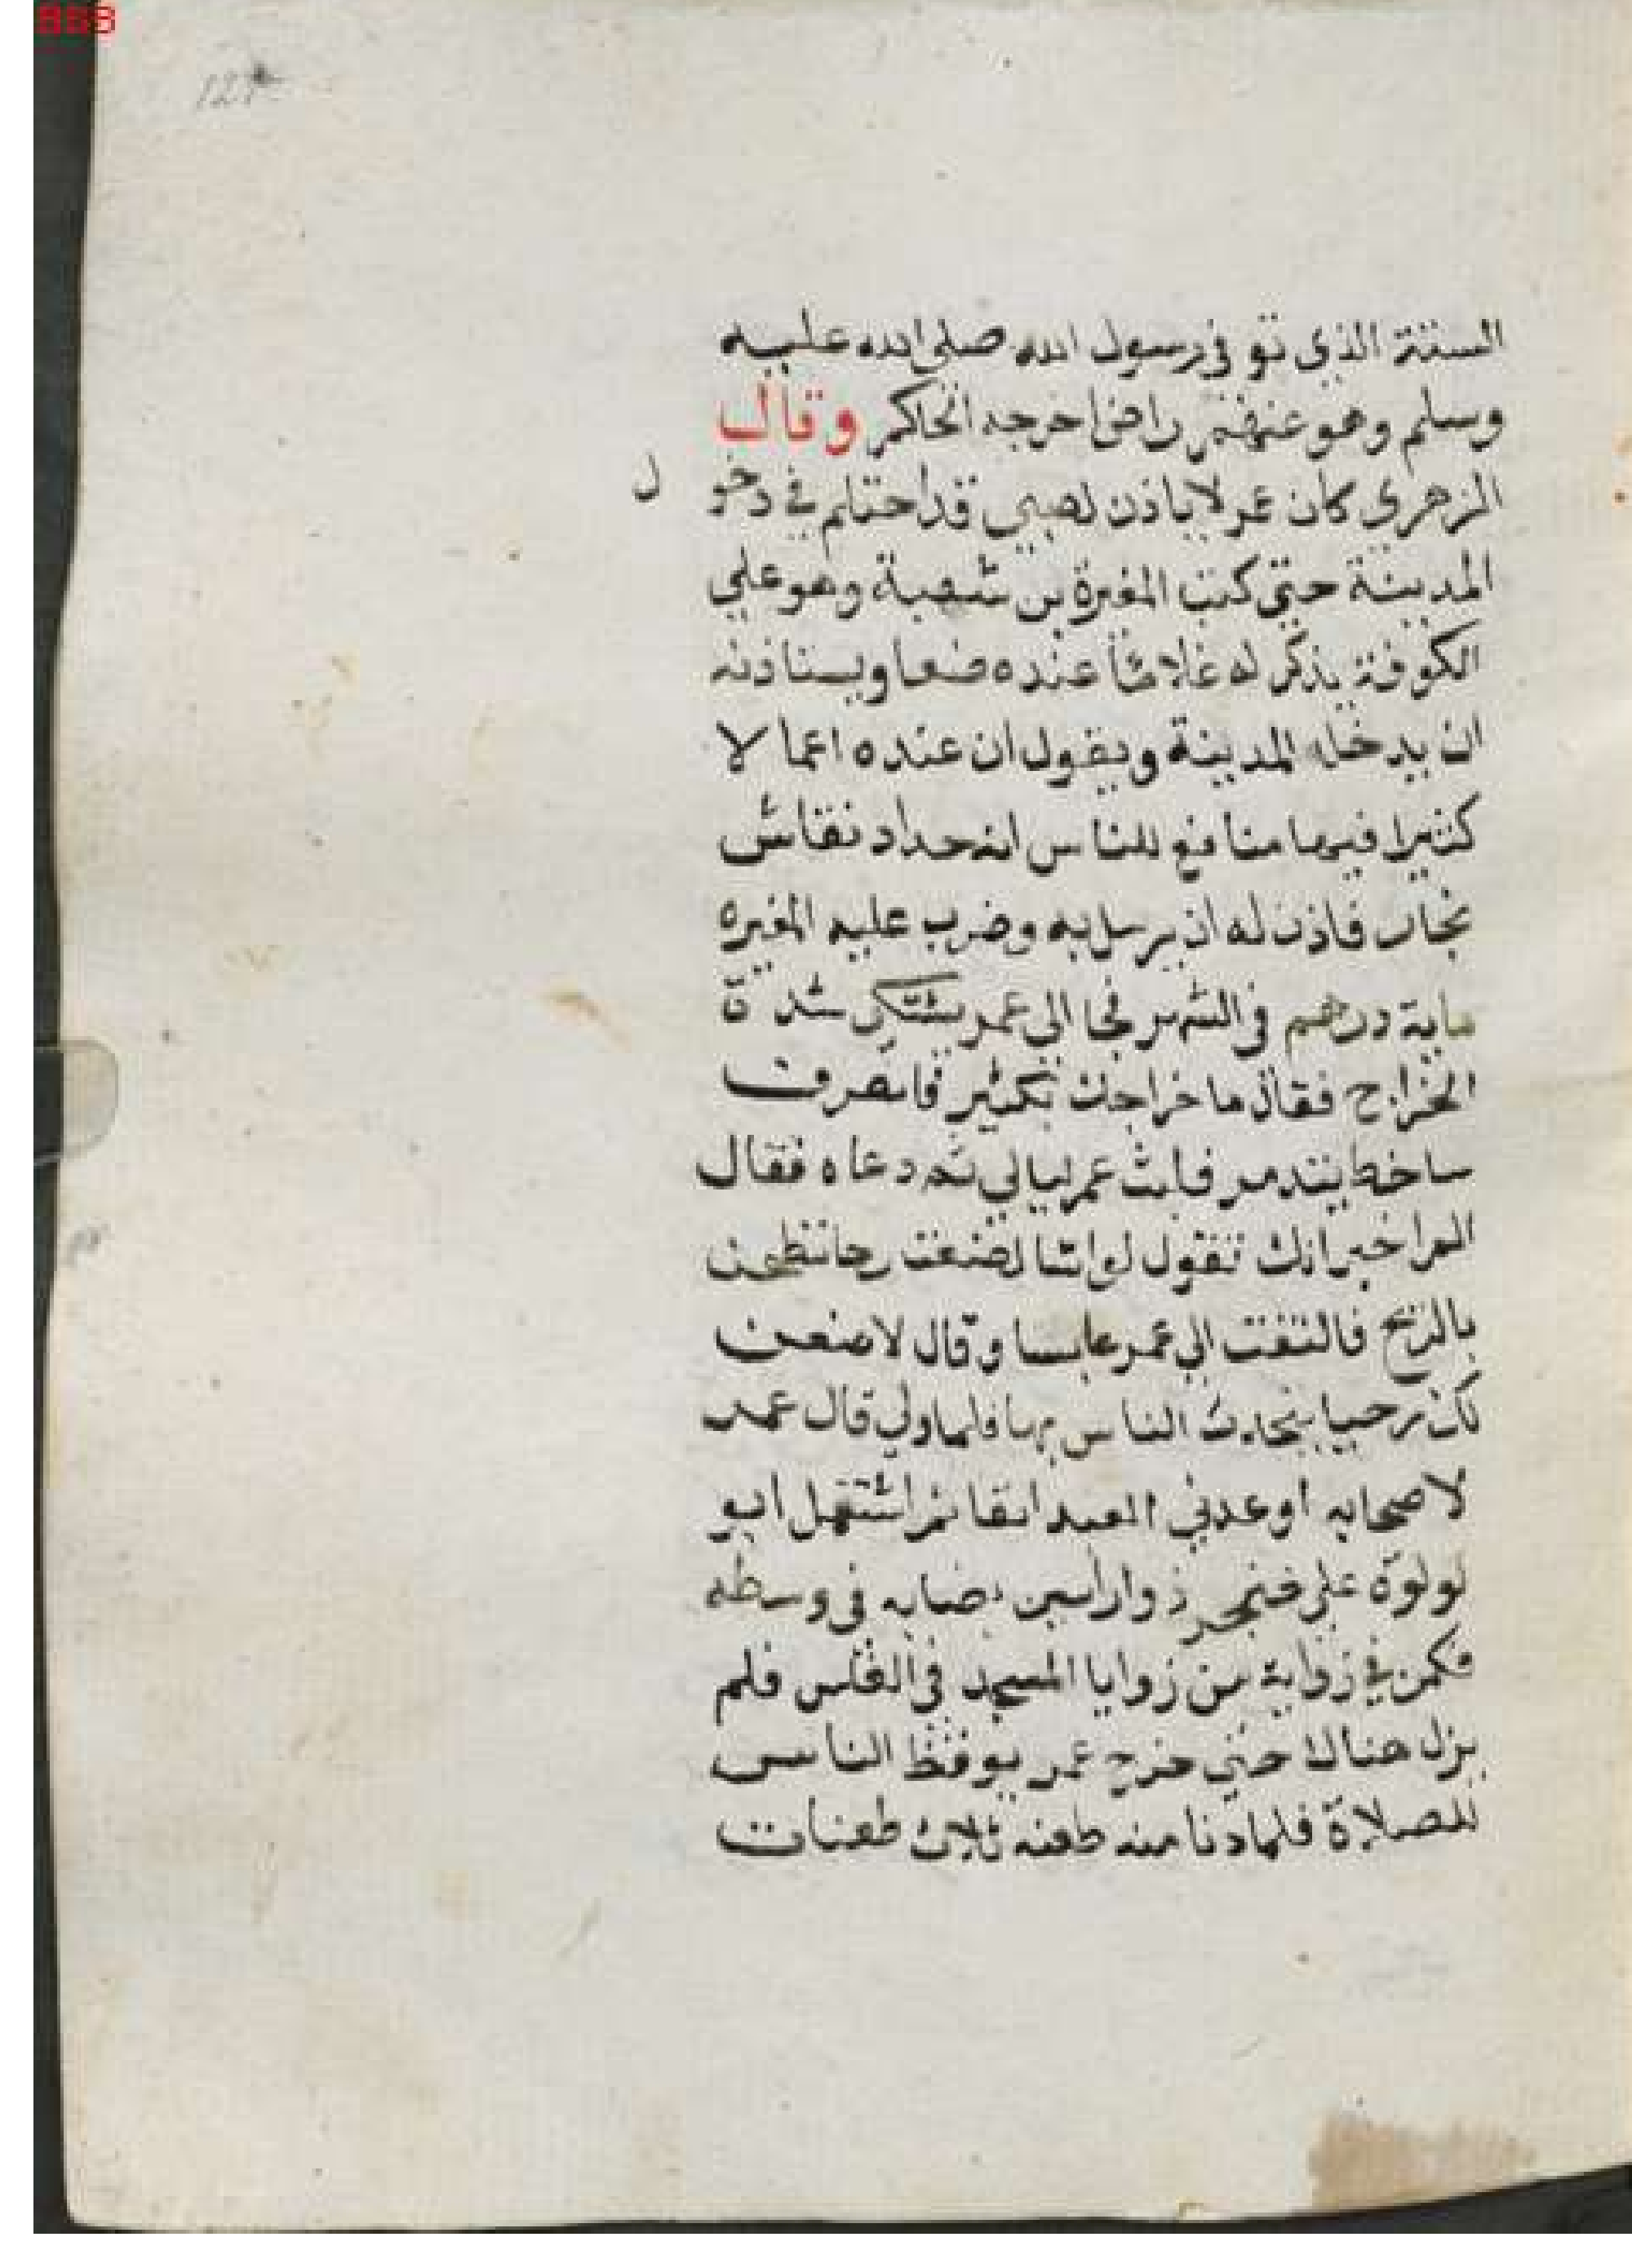 127
الستة الذي توفي رسول الله صلى الله عليه
وسلم وهو عنهم راض اخرجه الحاكم وقال
الزهري كان عمر لا ياذن لصبي قد احتلم في دخول
المدينة حتى كتب المغيرة بن شعبة وهو علي
الكوفة يذكر له غلاما عنده صنعا ويستاذنه
ان يدخله المدينة ويقول ان عنده اعمالا
كثيرا فيها منافع للناس انه حداد نقاش
نجار فاذن له ان يرسل به وضرب عليه المغيره
ماية درهم في الشهر فجا الي عمر يشتكي شدة
الخراج فقال ما خراجك بكثير فانصرف
ساخطا يتذمر فلبث عمر ليالي ثم دعاه فقال
الم اخبر انك تقول لو اشا لصنعت رحا تطحن
بالريح فالتفت الي عمر عابسا وقال لاصنعن
لك رحيا يتحدث الناس بها فلما ولي قال عمر
لاصحابه اوعدني العبد انفا ثم اشتمل ابو
لولوة علي خنجر ذو راسين نصابه في وسطه
فكمن في زواية من زوايا المسجد في الغلس فلم
يزل هناك حتي خرج عمر يوقظ الناس
للصلاة فلما دنا منه طعنه ثلاث طعنات